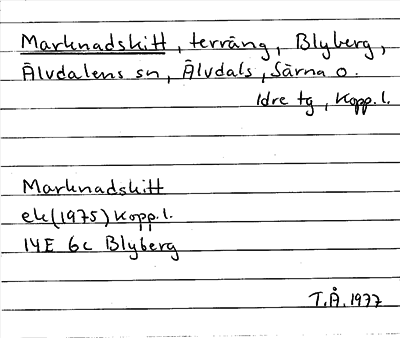 Marknadskitt, terräng, Blyberg,
Älvdalens sn, Älvdals, Särna o.
Idre tg, Kopp.l.
Marknadskitt
ek(1975) Kopp.l.
14E 6c Blyberg
T.Å. 1977